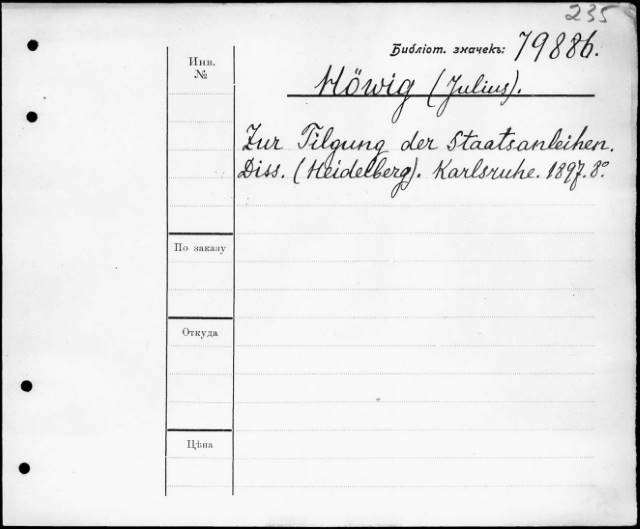 235
Библіот. значекъ: 79886.
Инв.
№
Höwig (Julius).
Zur Tilgung der Staatsanleihen.
Diss. (Heidelberg). Karlsruhe. 1897. 8°
По заказу
Откуда
Цѣна